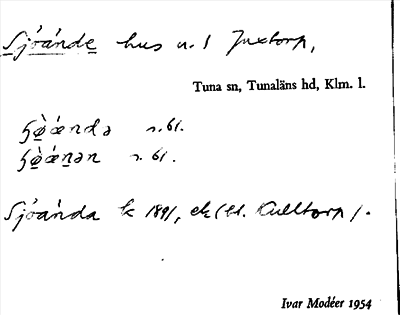 Sjöände hus u. 1 Juxtorp,
Tuna sn, Tunaläns hd, Klm. l.
r. 61.
r. 61.
Sjöända k 1891, ek (bl. Kulltorp).
Ivar Modéer 1954